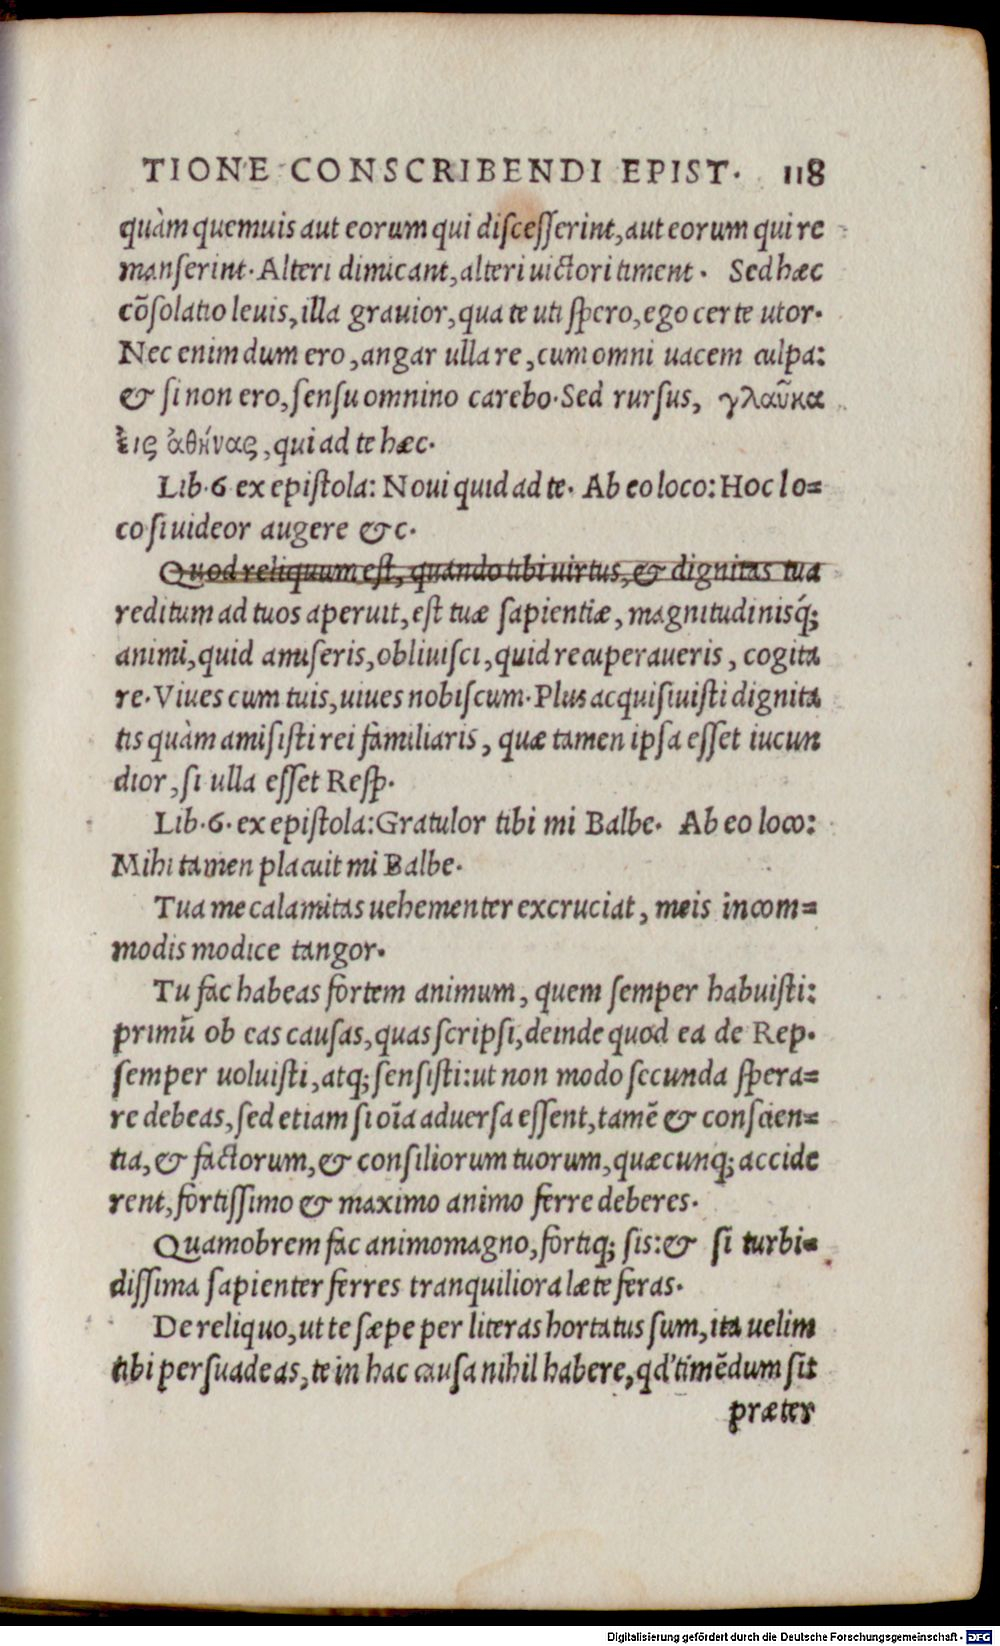 TIONE CONSCRIBENDI EPIST. 118
quàm quemuis aut eorum qui discesserint, aut eorum qui re
manserint. Alteri dimicant, alteri uictori timent. Sed hæc
cõsolatio leuis, illa grauior, qua te uti spero, ego certe utor.
Nec enim dum ero, angar ulla re, cum omni uacem culpa:
& si non ero, sensu omnino carebo. Sed rursus, γλαῦκα
εἰς ἀθήνας, qui ad te hæc.
Lib. 6 ex epistola: Noui quid ad te. Ab eo loco: Hoc lo=
co si uideor augere &c.
Quod reliquum est, quando tibi uirtus, & dignitas tua
reditum ad tuos aperuit, est tuæ sapientiæ, magnitudinisq́;
animi, quid amiseris, obliuisci, quid recuperaueris, cogita
re. Viues cum tuis, uiues nobiscum. Plus acquisiuisti dignita
tis quàm amisisti rei familiaris, quæ tamen ipsa esset iucun
dior, si ulla esset Resp.
Lib. 6. ex epistola: Gratulor tibi mi Balbe. Ab eo loco:
Mihi tamen placuit mi Balbe.
Tua me calamitas uehementer excruciat, meis incom=
modis modice tangor.
Tu fac habeas fortem animum, quem semper habuisti:
primũ ob eas causas, quas scripsi, deinde quod ea de Rep.
semper uoluisti, atq; sensisti: ut non modo secunda spera=
re debeas, sed etiam si oĩa aduersa essent, tamẽ & conscien=
tia, & factorum, & consiliorum tuorum, quæcunq; accide
rent, fortissimo & maximo animo ferre deberes.
Quamobrem fac animo magno, fortiq; sis: & si turbi=
dissima sapienter ferres tranquiliora læte feras.
De reliquo, ut te sæpe per literas hortatus sum, ita uelim
tibi persuadeas, te in hac causa nihil habere, qd' timẽdum sit
præter
Digitalisierung gefördert durch die Deutsche Forschungsgemeinschaft - DFG